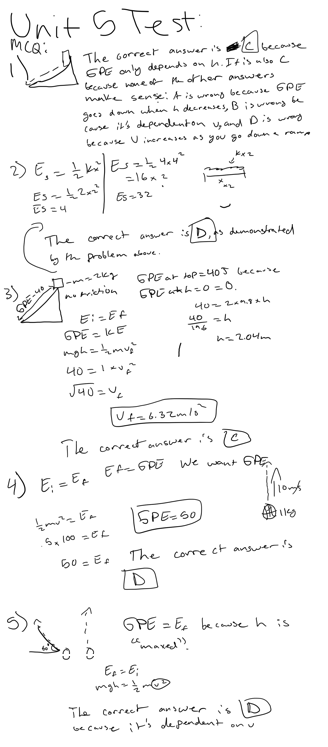 Unit 5 Test:
MCQ:
1) The correct answer is C because
GPE only depends on h. It is also C
because none of the other answers
make sense: A is wrong because GPE
goes down when h decreases, B is wrong be
cause it's dependent on v, and D is wrong
because V increases as you go down a ramp
2) Es = 1/2 kx²
Es = 1/2 2x²
Es = 4
Es = 1/2 4x4²
= 16 x 2
Es = 32
kx2
x=2
The correct answer is D, as demonstrated
by the problem above.
3) GPE=40
m = 2kg
no friction
GPE at top = 40J because
GPE at h = 0 = 0.
Ei = Ef
GPE = KE
mgh = 1/2 mvf²
40 = 1 x vf²
√40 = vf
40 = 2 x 9.8 x h
40/19.6 = h
h = 2.04m
Vf = 6.32m/s²
The correct answer is C
4) Ei = Ef Ef = GPE We want GPE
1/2 mv² = Ef
.5 x 100 = Ef
50 = Ef
GPE = 50
10m/s
1kg
The correct answer is
D
5) 60°
GPE = Ef because h is
"maxed".
Ef = Ei
mgh = 1/2 mv²
The correct answer is D
because it's dependent on v